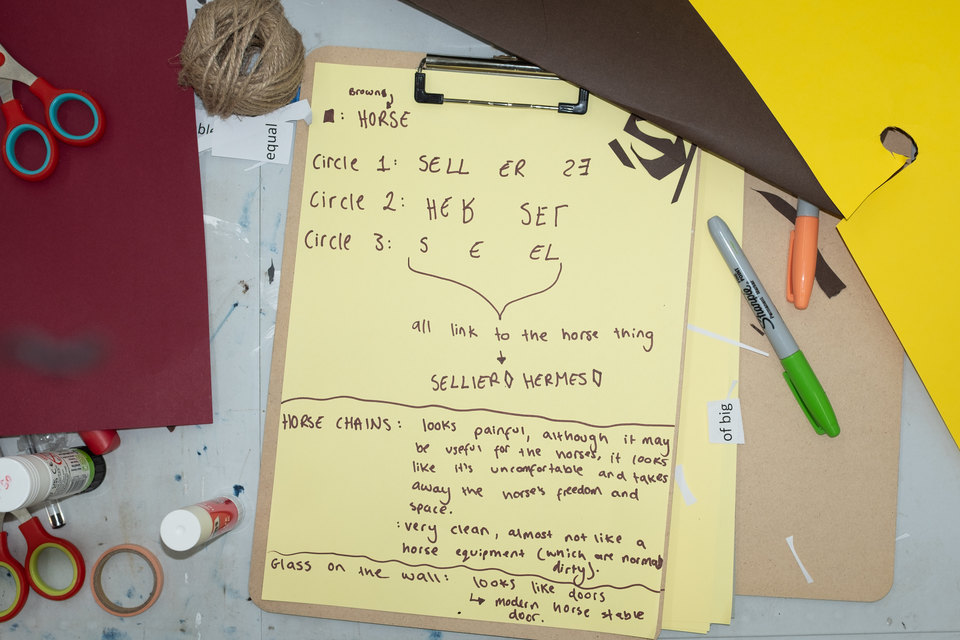 Browns
■: HORSE
Circle 1: SELL ER
Circle 2: SET
Circle 3: S E EL
all link to the horse thing
↓
SELLIER◊ HERMES◊
HORSE CHAINS: looks painful, although it may
be useful for the horses, it looks
like it's uncomfortable and takes
away the horse's freedom and
space.
: very clean, almost not like a
horse equipment (which are normal
dirty).
Glass on the wall: looks like doors
↳ modern horse stable
door.
equal
of big
Sharpie